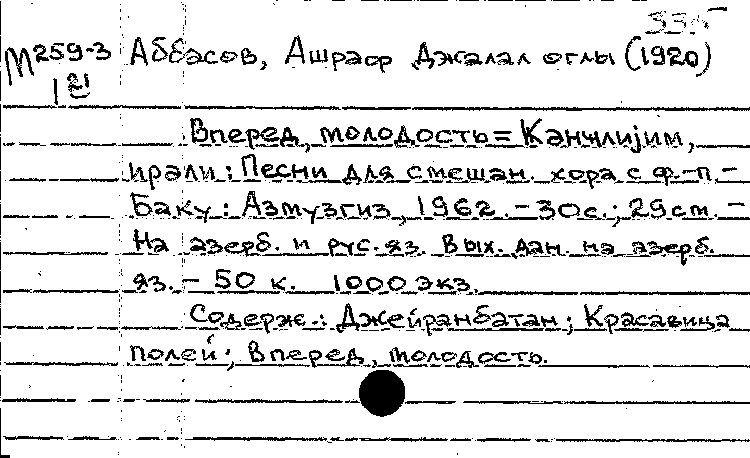 33.5
М259-3 Аббасов, Ашраф Джалал оглы (1920)
1
Вперед, молодость = Канчлијим,
ирәли: Песни для смешан. хора с ф.-п. -
Баку: Азмузгиз, 1962. - 30 с.; 29 см. -
На азерб. и рус. яз. Вых. дан. на азерб.
яз. - 50 к. 1000 экз.
Содерж.: Джейранбатан; Красавица
полей; Вперед, молодость.